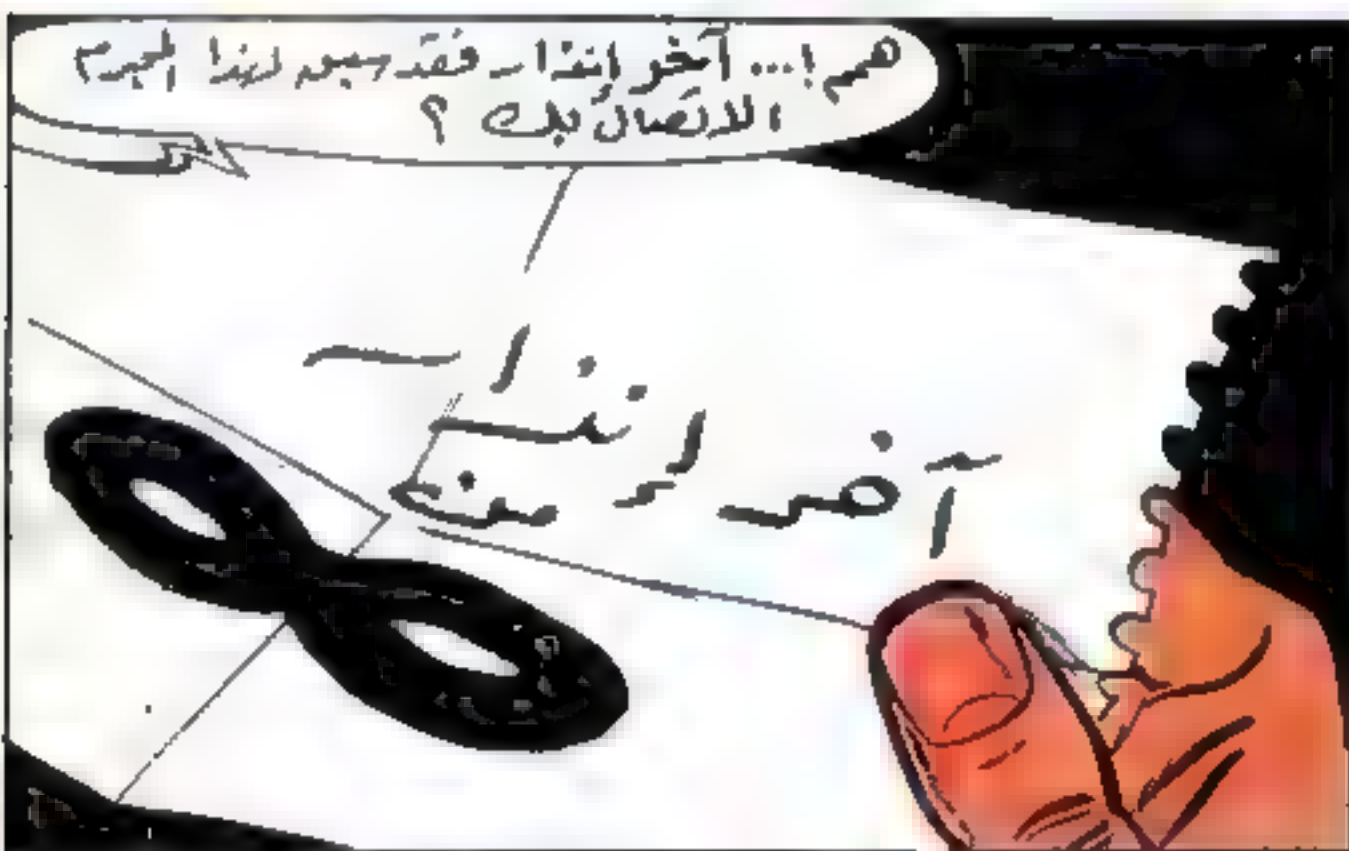 هم !... آخر إنذار فقد سبق لهذا المجرم
الاتصال بك ؟
آخر إنذار
من
8